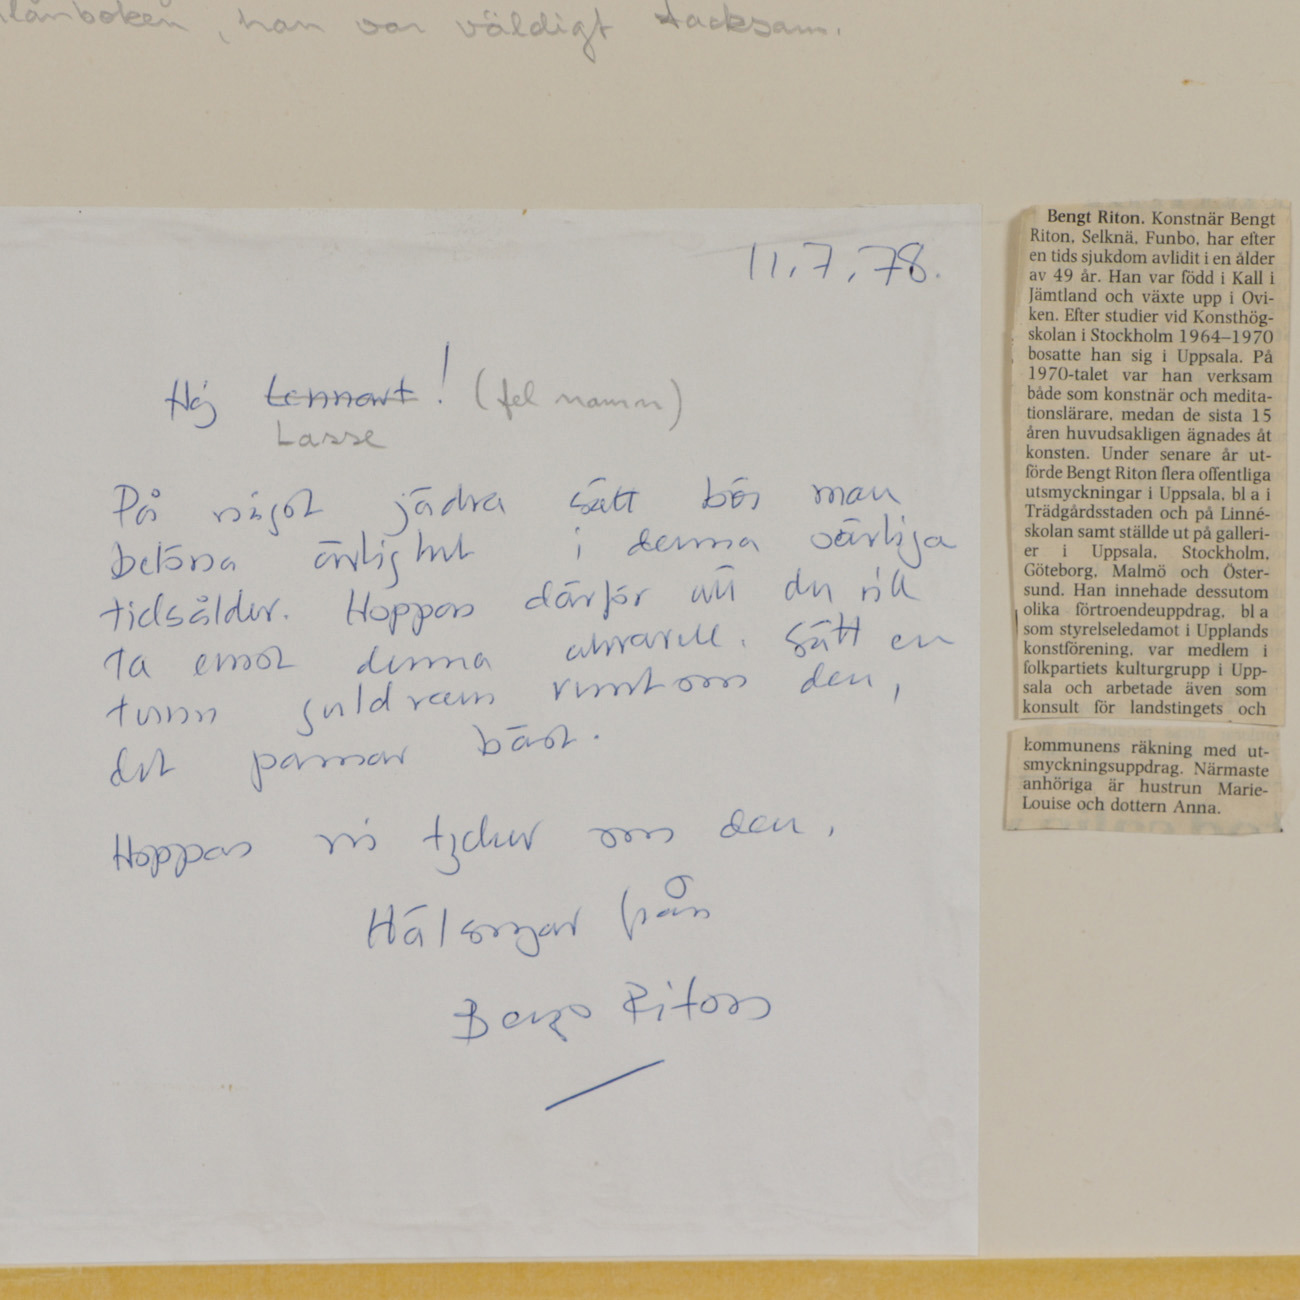 lånboken, han var väldigt tacksam.
11.7.78.
Hej Lennart! (fel namn)
Lasse
På något jädra sätt bör man
belöna ärlighet i denna särliga
tidsålder. Hoppas därför att du vill
ta emot denna akvarell. Sätt en
tunn guldram runt om den,
det passar bäst.
Hoppas ni tycker om den,
Hälsningar från
Bengt Riton
Bengt Riton. Konstnär Bengt
Riton, Selknä, Funbo, har efter
en tids sjukdom avlidit i en ålder
av 49 år. Han var född i Kall i
Jämtland och växte upp i Ovi-
ken. Efter studier vid Konsthög-
skolan i Stockholm 1964–1970
bosatte han sig i Uppsala. På
1970-talet var han verksam
både som konstnär och medita-
tionslärare, medan de sista 15
åren huvudsakligen ägnades åt
konsten. Under senare år ut-
förde Bengt Riton flera offentliga
utsmyckningar i Uppsala, bl a i
Trädgårdsstaden och på Linné-
skolan samt ställde ut på galleri-
er i Uppsala, Stockholm,
Göteborg, Malmö och Öster-
sund. Han innehade dessutom
olika förtroendeuppdrag, bl a
som styrelseledamot i Upplands
konstförening, var medlem i
folkpartiets kulturgrupp i Upp-
sala och arbetade även som
konsult för landstingets och
kommunens räkning med ut-
smyckningsuppdrag. Närmaste
anhöriga är hustrun Marie-
Louise och dottern Anna.